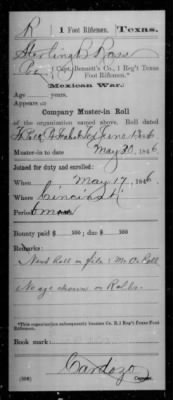 R | 1 Foot Riflemen. | Texas.
Sterling B Ross
(Capt. Bennett's Co., 1 Reg't Texas
Foot Riflemen.*
Mexican War.)
Age ......... years.
Appears on
Company Muster-in Roll
of the organization named above. Roll dated
June 1846
Muster-in to date May 30, 1846
Joined for duty and enrolled:
When May 17, 1846
Where
Period 6 mos
Bounty paid $ 100; due $ 100
Remarks:
New Roll in file; M. O. Roll
No age shown on Rolls.
*This organization subsequently became Co. B, 1 Reg't Texas Foot
Riflemen.
Book mark:
Cardozo
Copyist.